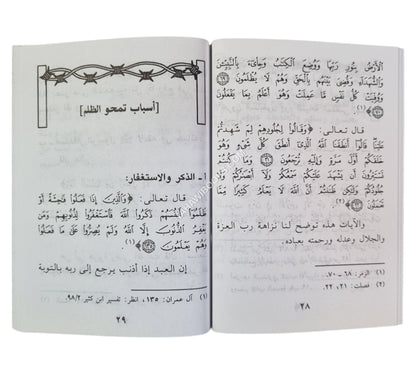 الْأَرْضُ بِنُورِ رَبِّهَا وَوُضِعَ الْكِتَابُ وَجِاْيٓءَ بِالنَّبِيِّينَ
وَالشُّهَدَاءِ وَقُضِيَ بَيْنَهُم بِالْحَقِّ وَهُمْ لَا يُظْلَمُونَ ﴿٦٩﴾
وَوُفِّيَتْ كُلُّ نَفْسٍ مَّا عَمِلَتْ وَهُوَ أَعْلَمُ بِمَا يَفْعَلُونَ
﴿٧٠﴾(١).
قال تعالى: ﴿وَقَالُوا لِجُلُودِهِمْ لِمَ شَهِدتُّمْ
عَلَيْنَا قَالُوا أَنطَقَنَا اللَّهُ الَّذِي أَنطَقَ كُلَّ شَيْءٍ وَهُوَ
خَلَقَكُمْ أَوَّلَ مَرَّةٍ وَإِلَيْهِ تُرْجَعُونَ ﴿٢١﴾ وَمَا كُنتُمْ
تَسْتَتِرُونَ أَن يَشْهَدَ عَلَيْكُمْ سَمْعُكُمْ وَلَا أَبْصَارُكُمْ وَلَا
جُلُودُكُمْ وَلَكِن ظَنَنتُمْ أَنَّ اللَّهَ لَا يَعْلَمُ كَثِيرًا مِّمَّا
تَعْمَلُونَ ﴿٢٢﴾(٢).
والآيات هذه توضح لنا نزاهة رب العزة
والجلال وعدله ورحمته بعباده.
(١) الزمر: ٦٨ - ٧٠.
(٢) فصلت: ٢١، ٢٢.
٢٨
[أسباب تمحو الظلم]
١- الذكر والاستغفار:
قال تعالى: ﴿وَالَّذِينَ إِذَا فَعَلُوا فَاحِشَةً أَوْ
ظَلَمُوا أَنفُسَهُمْ ذَكَرُوا اللَّهَ فَاسْتَغْفَرُوا لِذُنُوبِهِمْ وَمَن
يَغْفِرُ الذُّنُوبَ إِلَّا اللَّهُ وَلَمْ يُصِرُّوا عَلَى مَا فَعَلُوا
وَهُمْ يَعْلَمُونَ ﴿١٣٥﴾(١).
إن العبد إذا أذنب يرجع إلى ربه بالتوبة
(١) آل عمران: ١٣٥، انظر: تفسير ابن كثير ٩٨/٢.
٢٩